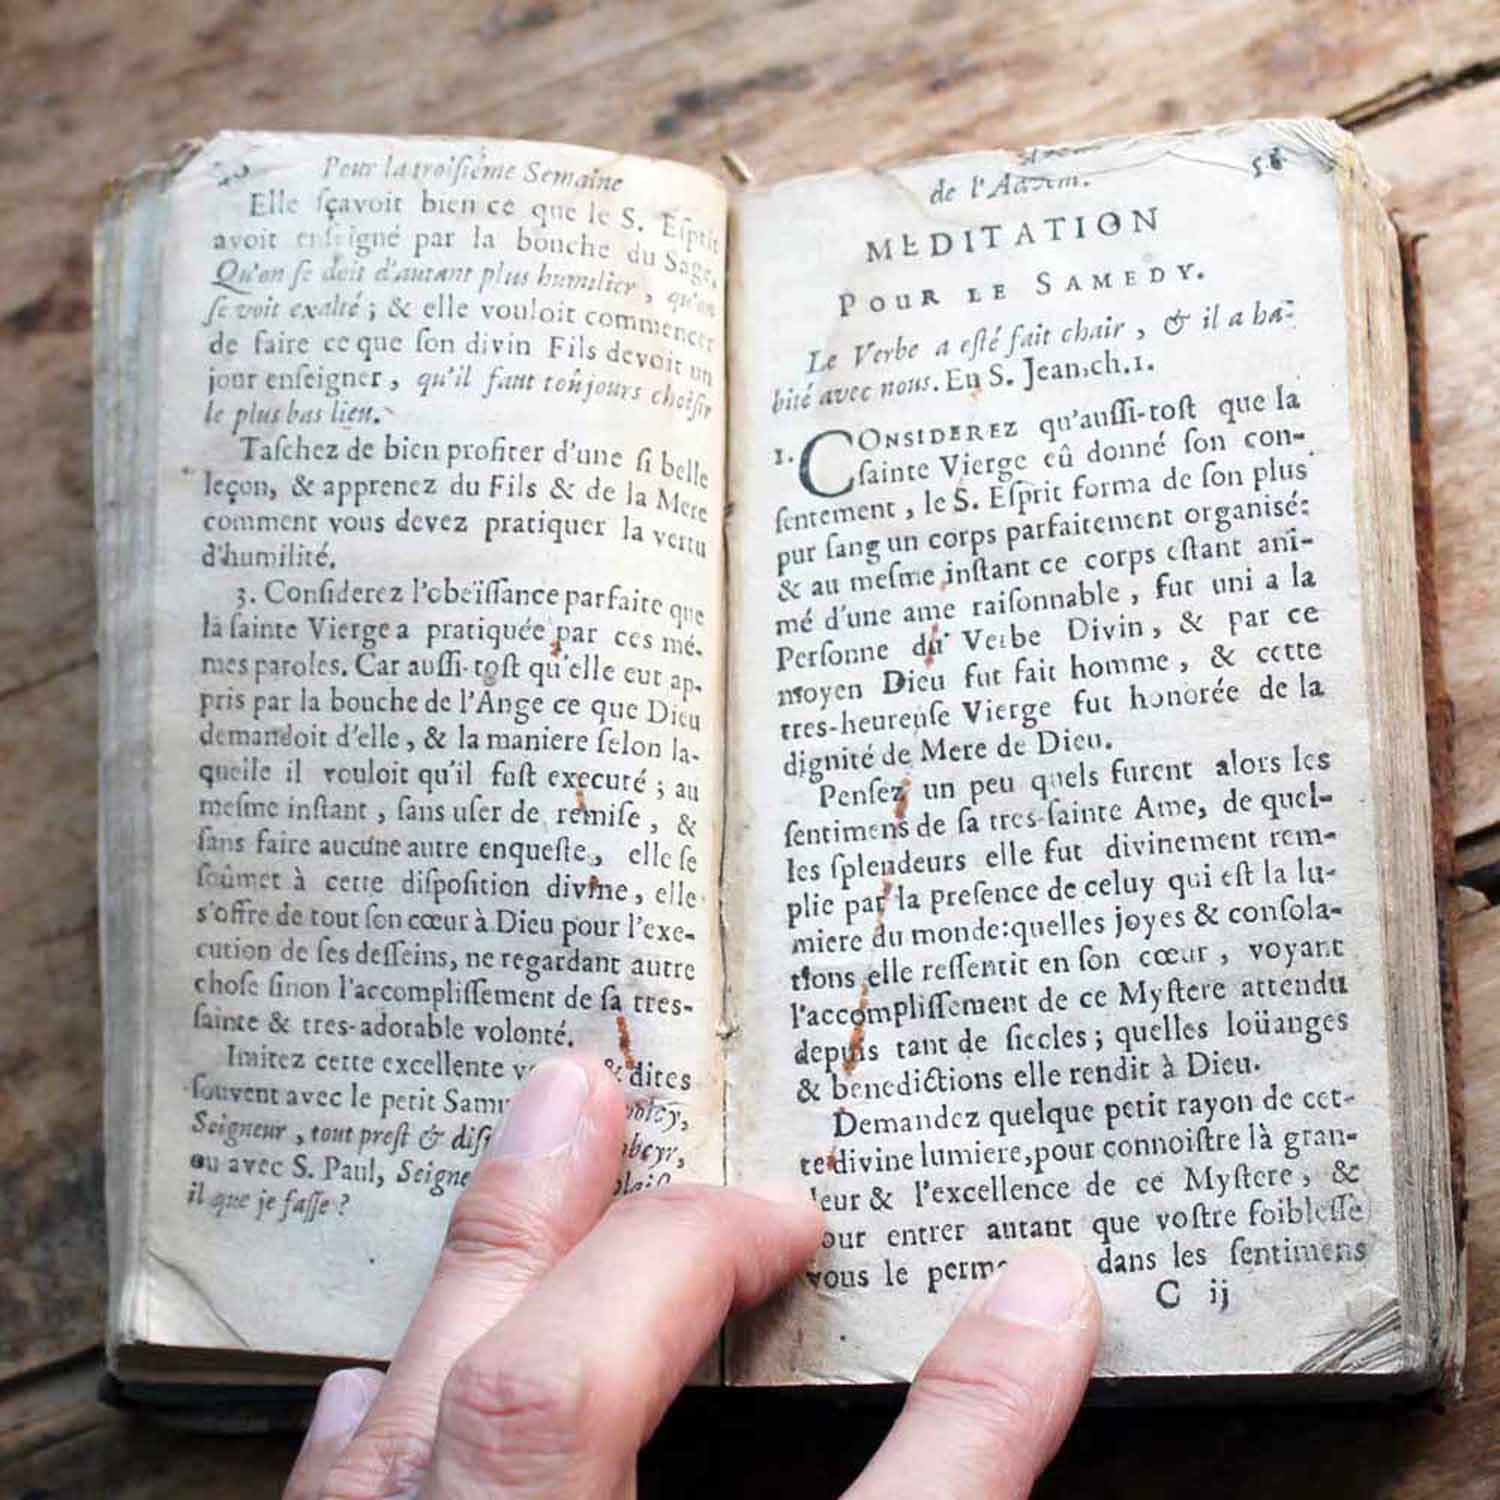 Pour la troiſiéme Semaine
Elle ſçavoit bien ce que le S. Eſprit
avoit enſeigné par la bouche du Sage,
Qu'on ſe doit d'autant plus humilier, qu'on
ſe voit exalté; & elle vouloit commencer
de faire ce que ſon divin Fils devoit un
jour enſeigner, qu'il faut toûjours choiſir
le plus bas lieu.
Taſchez de bien profiter d'une ſi belle
leçon, & apprenez du Fils & de la Mere
comment vous devez pratiquer la vertu
d'humilité.
3. Conſiderez l'obeïſſance parfaite que
la ſainte Vierge a pratiquée par ces mé-
mes paroles. Car auſſi-toſt qu'elle eut ap-
pris par la bouche de l'Ange ce que Dieu
demandoit d'elle, & la maniere ſelon la-
quelle il vouloit qu'il fuſt executé; au
meſme inſtant, ſans uſer de remiſe, &
ſans faire aucune autre enqueſte, elle ſe
ſoûmet à cette diſpoſition divine, elle
s'offre de tout ſon cœur à Dieu pour l'exe-
cution de ſes deſſeins, ne regardant autre
choſe ſinon l'accompliſſement de ſa tres-
ſainte & tres-adorable volonté.
Imitez cette excellente & dites
ſouvent avec le petit
Seigneur, tout preſt &
ou avec S. Paul,
il que je faſſe?
de l'Advent. 56
MEDITATION
POUR LE SAMEDY.
Le Verbe a eſté fait chair, & il a ha-
bité avec nous. En S. Jean, ch. 1.
1. CONSIDEREZ qu'auſſi-toſt que la
ſainte Vierge eû donné ſon con-
ſentement, le S. Eſprit forma de ſon plus
pur ſang un corps parfaitement organisé:
& au meſme inſtant ce corps eſtant ani-
mé d'une ame raiſonnable, fut uni a la
Perſonne du Verbe Divin, & par ce
moyen Dieu fut fait homme, & cette
tres-heureuſe Vierge fut honorée de la
dignité de Mere de Dieu.
Penſez un peu quels furent alors les
ſentimens de ſa tres-ſainte Ame, de quel-
les ſplendeurs elle fut divinement rem-
plie par la preſence de celuy qui eſt la lu-
miere du monde: quelles joyes & conſola-
tions elle reſſentit en ſon cœur, voyant
l'accompliſſement de ce Myſtere attendu
depuis tant de ſiecles; quelles loüanges
& benedictions elle rendit à Dieu.
Demandez quelque petit rayon de cet-
te divine lumiere, pour connoiſtre là gran-
deur & l'excellence de ce Myſtere, &
pour entrer autant que voſtre foibleſſe
vous le dans les ſentimens
C ij